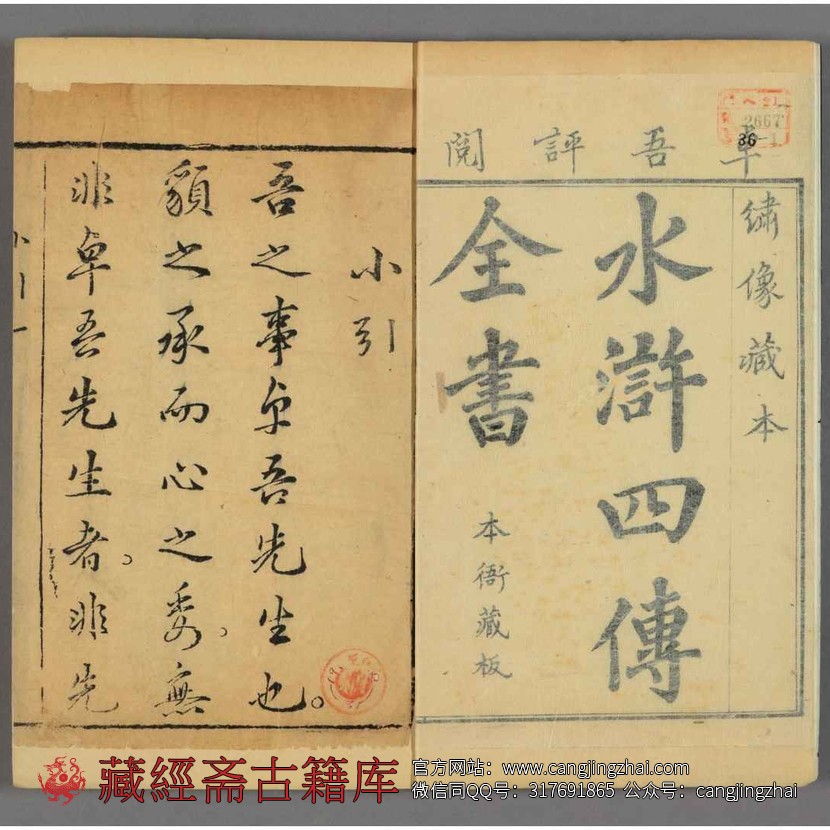 卓吾評閱
繡像藏本
水滸四傳
全書
本衙藏板
2667
36-1
小引
吾之事卓吾先生也。
貌之承而心之委，無
非卓吾先生者。非先
小引一
藏經斋古籍库
官方网站：www.cangjingzhai.com
微信同QQ号：317691865 公众号：cangjingzhai